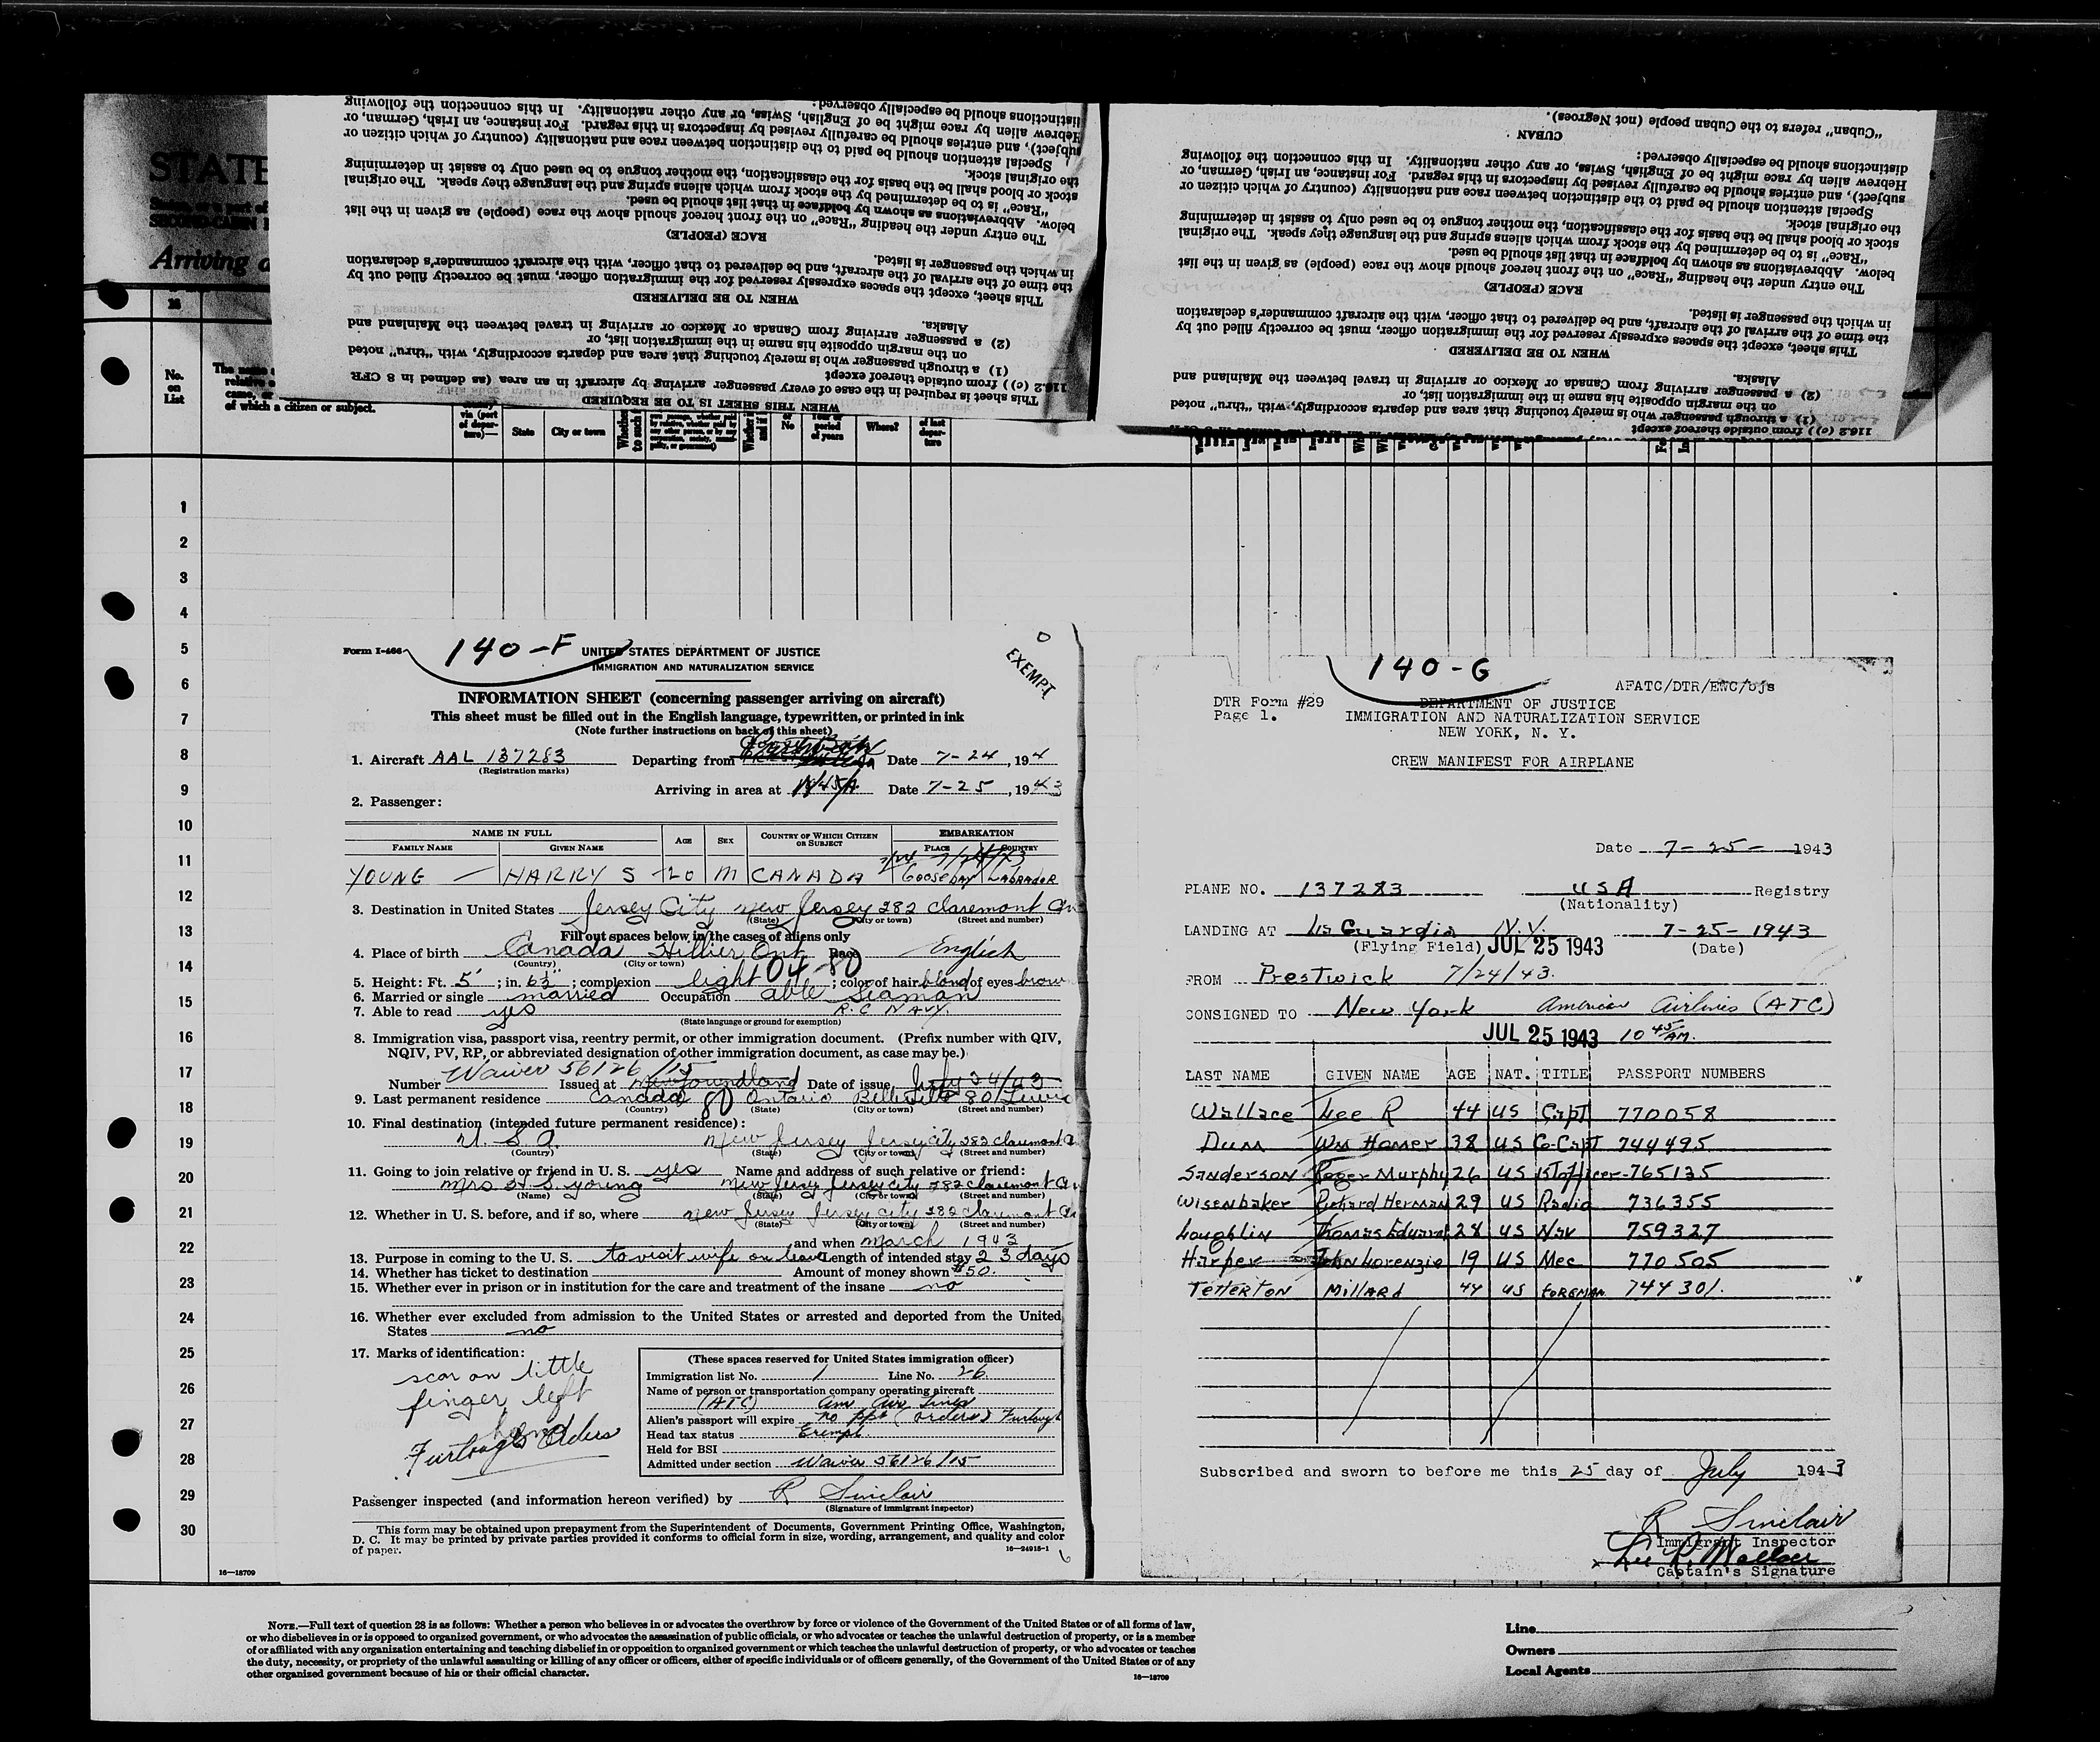 STATE
SECOND-CABIN
Arriving a
No. on List
of which a citizen or subject.
"Cuban" refers to the Cuban people (not Negroes).
CUBAN
distinctions should be especially observed:
Hebrew alien by race might be of English, Swiss, or any other nationality. In this connection the following
subject), and entries should be carefully revised by inspectors in this regard. For instance, an Irish, German, or
Special attention should be paid to the distinction between race and nationality (country of which citizen or
the original stock.
stock or blood shall be the basis for the classification, the mother tongue to be used only to assist in determining
"Race" is to be determined by the stock from which aliens spring and the language they speak. The original
below. Abbreviations as shown by boldface in that list should be used.
The entry under the heading "Race" on the front hereof should show the race (people) as given in the list
RACE (PEOPLE)
in which the passenger is listed.
the time of the arrival of the aircraft, and be delivered to that officer, with the aircraft commander's declaration
This sheet, except the spaces expressly reserved for the immigration officer, must be correctly filled out by
WHEN TO BE DELIVERED
Alaska.
(2) a passenger arriving from Canada or Mexico or arriving in travel between the Mainland and
on the margin opposite his name in the immigration list, or
(1) a through passenger who is merely touching that area and departs accordingly, with "thru" noted
116.2 (c)) from outside thereof except
This sheet is required in the case of every passenger arriving by aircraft in an area (as defined in 8 CFR
WHEN THIS SHEET IS TO BE REQUIRED
via (port of departure)— State City or town No period of years Where? of last departure
1
2
3
4
5
6
7
8
9
10
11
12
13
14
15
16
17
18
19
20
21
22
23
24
25
26
27
28
29
30
Form I-466 140-F UNITED STATES DEPARTMENT OF JUSTICE
IMMIGRATION AND NATURALIZATION SERVICE
EXEMPT
INFORMATION SHEET (concerning passenger arriving on aircraft)
This sheet must be filled out in the English language, typewritten, or printed in ink
(Note further instructions on back of this sheet)
1. Aircraft AAL 137283 Departing from Date 7-24, 194
(Registration marks)
Arriving in area at Date 7-25, 1943
2. Passenger:
NAME IN FULL AGE SEX COUNTRY OF WHICH CITIZEN OR SUBJECT EMBARKATION
FAMILY NAME GIVEN NAME PLACE COUNTRY
YOUNG — HARRY S 20 M CANADA Goose Bay Labrador
3. Destination in United States Jersey City New Jersey 282 Claremont Av
(State) (City or town) (Street and number)
Fill out spaces below in the cases of aliens only
4. Place of birth Canada Hillier Ont Race English
(Country) (City or town)
04-80
5. Height: Ft. 5'; in. 6½"; complexion light; color of hair blond of eyes brow
6. Married or single married Occupation able Seaman
7. Able to read yes R.C. NAVY.
(State language or ground for exemption)
8. Immigration visa, passport visa, reentry permit, or other immigration document. (Prefix number with QIV,
NQIV, PV, RP, or abbreviated designation of other immigration document, as case may be.)
Number Waiver 56126/15 Issued at Newfoundland Date of issue July 24/43
9. Last permanent residence Canada 80 Ontario Belleville 80 Lewis
(Country) (State) (City or town) (Street and number)
10. Final destination (intended future permanent residence):
U. S. A. New Jersey Jersey City 282 Claremont A
(Country) (State) (City or town) (Street and number)
11. Going to join relative or friend in U. S. yes Name and address of such relative or friend:
Mrs H. S. Young New Jersey Jersey City 282 Claremont Av
(Name) (State) (City or town) (Street and number)
12. Whether in U. S. before, and if so, where New Jersey Jersey City 282 Claremont Av
(State) (City or town) (Street and number)
and when March 1943
13. Purpose in coming to the U. S. to visit wife on leave Length of intended stay 23 days
14. Whether has ticket to destination Amount of money shown $50.
15. Whether ever in prison or in institution for the care and treatment of the insane no
16. Whether ever excluded from admission to the United States or arrested and deported from the United
States no
17. Marks of identification:
scar on little
finger left
hand
Furlough Orders
(These spaces reserved for United States immigration officer)
Immigration list No. 1 Line No. 26
Name of person or transportation company operating aircraft
(ATC) Am Air Lines
Alien's passport will expire no ppt (orders) Furlough
Head tax status Exempt
Held for BSI
Admitted under section Waiver 56126/15
Passenger inspected (and information hereon verified) by R Sinclair
(Signature of immigrant inspector)
This form may be obtained upon prepayment from the Superintendent of Documents, Government Printing Office, Washington,
D. C. It may be printed by private parties provided it conforms to official form in size, wording, arrangement, and quality and color
of paper. 16—24915-1
16—18709
140-G
AFATC/DTR/EWC/ojs
DTR Form #29 DEPARTMENT OF JUSTICE
Page 1. IMMIGRATION AND NATURALIZATION SERVICE
NEW YORK, N. Y.
CREW MANIFEST FOR AIRPLANE
Date 7-25- 1943
PLANE NO. 137283 USA Registry
(Nationality)
LANDING AT La Guardia N.Y. 7-25-1943
(Flying Field) JUL 25 1943 (Date)
FROM Prestwick 7/24/43.
CONSIGNED TO New York American Airlines (ATC)
JUL 25 1943 10 45 AM.
LAST NAME GIVEN NAME AGE NAT. TITLE PASSPORT NUMBERS
Wallace Lee R 44 US Capt 770058
Dunn Wm Homer 38 US Co-Capt 744495
Sanderson Roger Murphy 26 US 1st Officer 765135
Wisenbaker Richard Herman 29 US Radio 736355
Loughlin Thomas Edward 28 US Nav 759327
Harper John Lorenzie 19 US Mec 770505
TETTERTON MILLARD 44 US FOREMAN 744301.
Subscribed and sworn to before me this 25 day of July 1943
R Sinclair
Immigrant Inspector
x Lee R. Wallace
Captain's Signature
NOTE.—Full text of question 28 is as follows: Whether a person who believes in or advocates the overthrow by force or violence of the Government of the United States or of all forms of law,
or who disbelieves in or is opposed to organized government, or who advocates the assassination of public officials, or who advocates or teaches the unlawful destruction of property, or is a member
of or affiliated with any organization entertaining and teaching disbelief in or opposition to organized government or which teaches the unlawful destruction of property, or who advocates or teaches
the duty, necessity, or propriety of the unlawful assaulting or killing of any officer or officers, either of specific individuals or of officers generally, of the Government of the United States or of any
other organized government because of his or their official character. 16—18709
Line
Owners
Local Agents